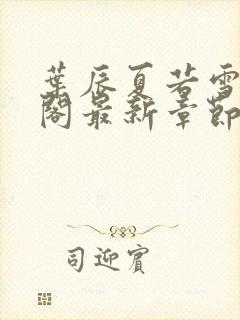 葉辰夏若雪
閣最新章節
司迎賓